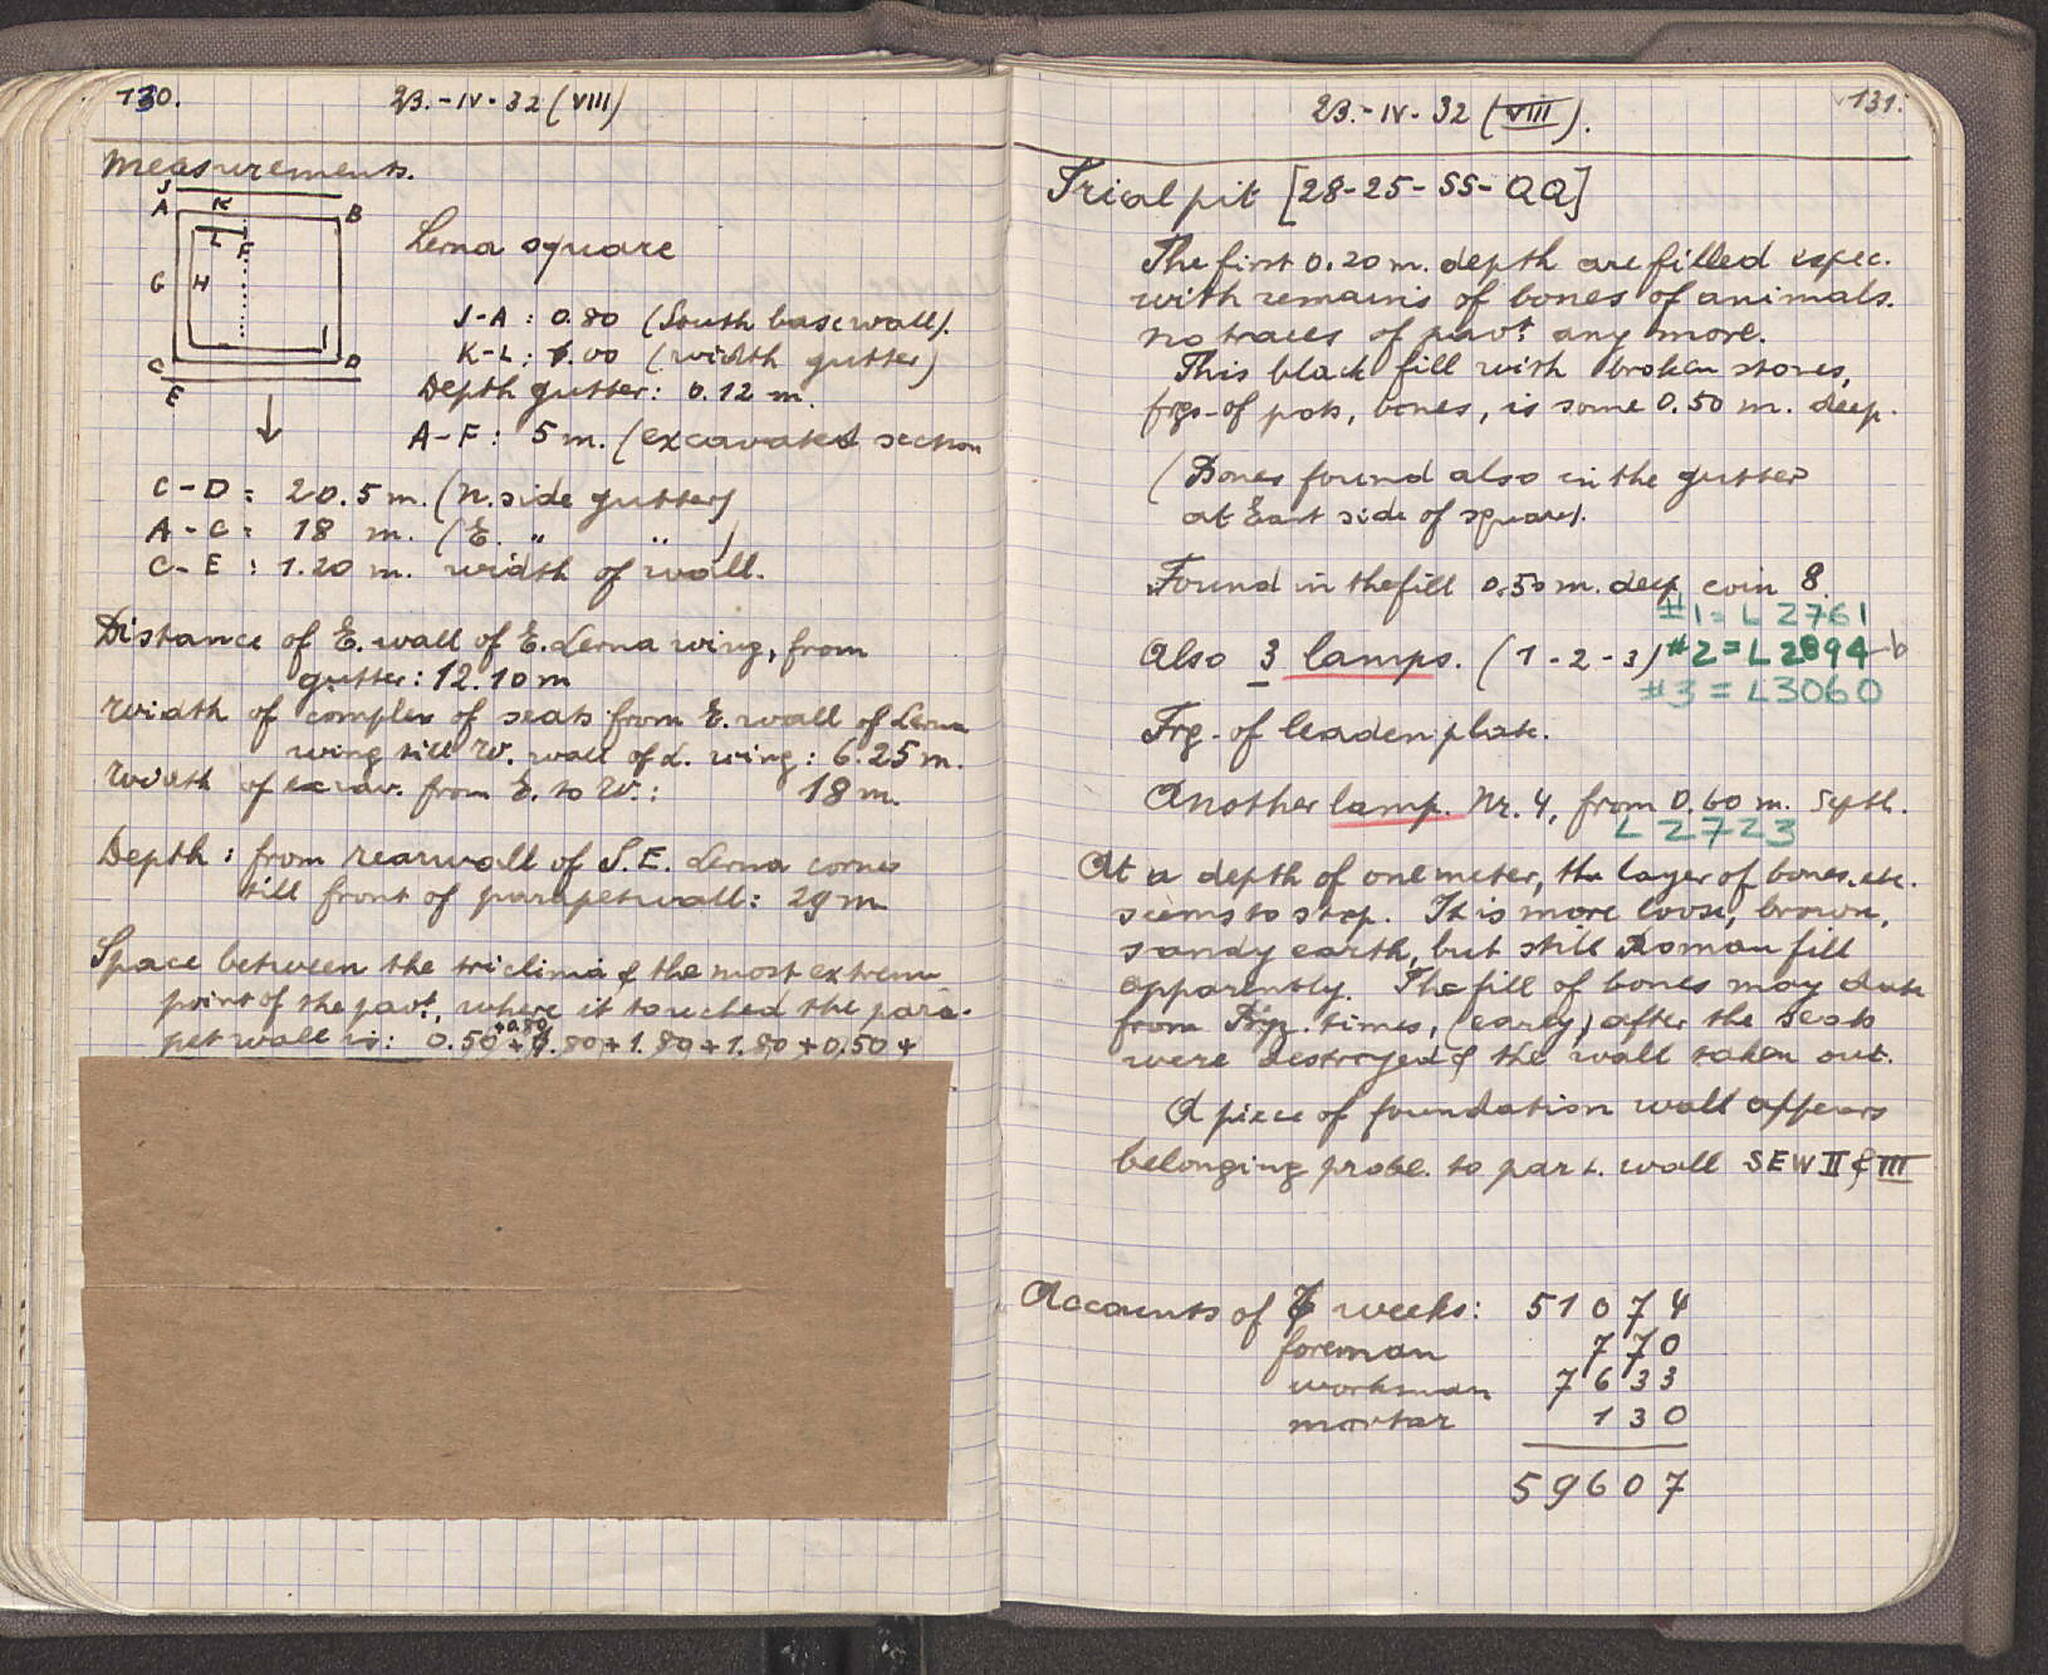 130.
23.-IV-32 (VIII)
Measurements.
J
A K B
L F
G H
C D
E
Lerna square
J-A : 0.80 (South base wall).
K-L : 1.00 (width gutter)
Depth gutter: 0.12 m.
A-F : 5 m. (excavated section
C-D = 20.5 m. (N. side gutter)
A-C = 18 m. (E. " " )
C-E : 1.20 m. width of wall.
Distance of E. wall of E. Lerna wing, from
gutter: 12.10 m
Width of complex of seats from E. wall of Lerna
wing till W. wall of L. wing: 6.25 m.
Width of excav. from E. to W.: 18 m.
Depth: from rearwall of S.E. Lerna corner
till front of parapetwall: 29 m
Space between the triclinia & the most extreme
point of the pavt, where it touched the para-
pet wall is: 0.50 + .80 + 1.80 + 1.80 + 0.50 +
+0.80
23.-IV-32 (VIII).
131.
Trial pit [28-25-SS-QQ]
The first 0.20 m. depth are filled espec.
with remains of bones of animals.
no traces of pavt any more.
This black fill with broken stones,
frgs. of pots, bones, is some 0.50 m. deep.
(Bones found also in the gutter
at East side of square).
Found in the fill 0.50 m. deep coin 8.
#1 = L 2761
Also 3 lamps. (1-2-3) #2 = L 2894-b
#3 = L3060
Frg. of leaden plate.
Another lamp. Nr. 4, from 0.60 m. depth.
L 2723
At a depth of one meter, the layer of bones, etc.
seems to stop. It is more loose, brown,
sandy earth, but still Roman fill
apparently. The fill of bones may date
from Byz. times, (early) after the seats
were destroyed & the wall taken out.
A piece of foundation wall appears
belonging probl. to par t. wall SEW II & III
Accounts of weeks: 51074
foreman 770
workman 7633
mortar 130
59607